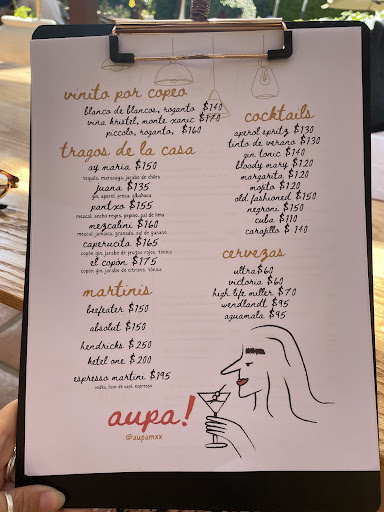 vinito por copeo
blanco de blancos, roganto $140
viña kristel, monte xanic $170
piccolo, roganto, $160
tragos de la casa
ay maria $150
tequila, maracuya, jarabe de chiles
juana $135
gin, aperol, fresa, albahaca
pantxo $155
mezcal, ancho reyes, pepino, sal de lima
mezcalini $160
mezcal, jamaica, granada, sal de gusano
caperucita $165
copón gin, jarabe de frutos rojos, tónica
el copón $175
copón gin, jarabe de citricos, tónica
martinis
beefeater $150
absolut $150
hendricks $250
ketel one $200
espresso martini $195
vodka, licor de café, espresso
cocktails
aperol spritz $130
tinto de verano $130
gin tonic $140
bloody mary $120
margarita $120
mojito $120
old fashioned $150
negroni $150
cuba $110
carajillo $ 140
cervezas
ultra $60
victoria $60
high life miller $70
wendlandt $95
aguamala $95
aupa!
@aupamxx